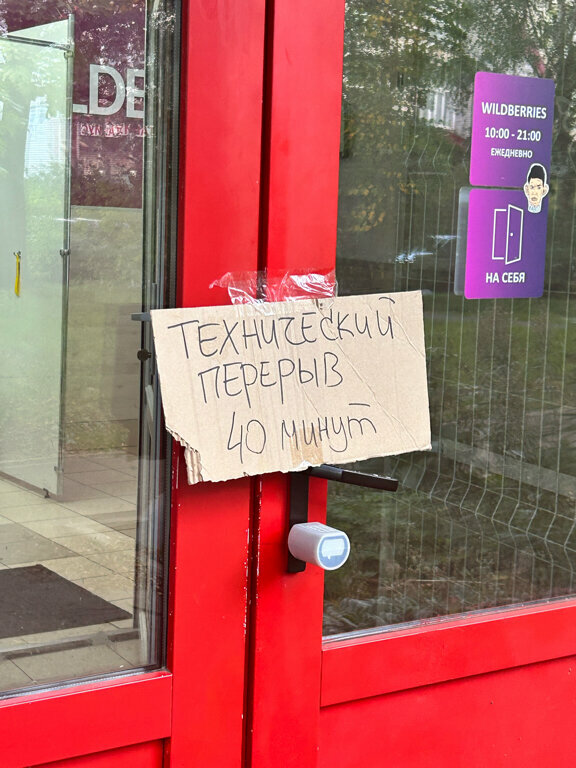 LDE
WILDBERRIES
10:00 - 21:00
ЕЖЕДНЕВНО
НА СЕБЯ
ТЕХНИЧЕСКИЙ
ПЕРЕРЫВ
40 минут